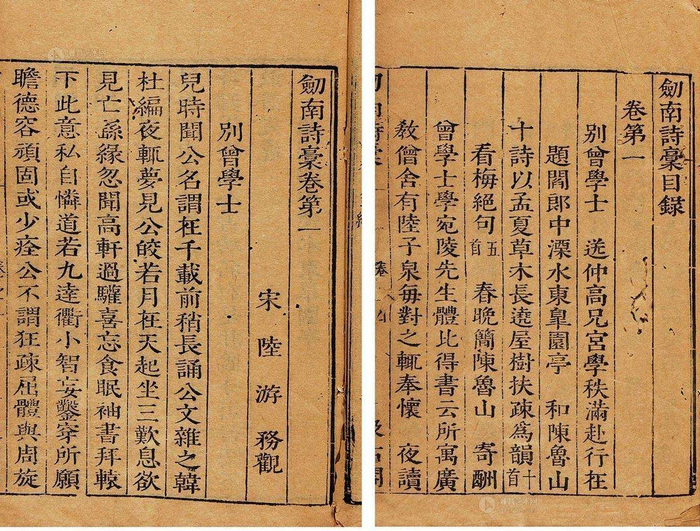 劒南詩稾目録
卷第一
別曾學士 送仲高兄宮學秩滿赴行在
題閻郎中溧水東皐園亭 和陳魯山
十詩以孟夏草木長遶屋樹扶疎為韻十首
看梅絕句五首 春晚簡陳魯山 寄酬
曾學士學宛陵先生體比得書云所寓廣
教僧舍有陸子泉每對之輒奉懷 夜讀
劒南詩稾卷第一
宋 陸 游 務觀
別曾學士
兒時聞公名謂在千載前稍長誦公文雜之韓
杜編夜輒夢見公皎若月在天起坐三歎息欲
見亡繇緣忽聞高軒過驩喜忘食眠袖書拜轅
下此意私自憐道若九逵衢小智妄鑿穿所願
瞻德容頑固或少痊公不謂狂疎屈體與周旋